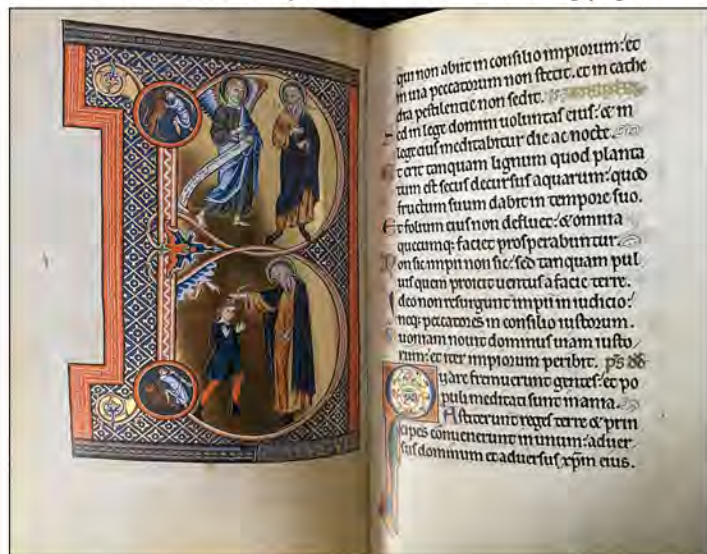 qui non abiit in consilio impiorum: et
in uia peccatorum non stetit. et in cathe
dra pestilentie non sedit.
ed in lege domini uoluntas eius: & in
lege eius meditabitur die ac nocte.
t erit tanquam lignum quod planta
tum est secus decursus aquarum: quod
fructum suum dabit in tempore suo.
Et folium eius non defluet: & omnia
quecumq: faciet prosperabuntur.
on sic impii non sic: sed tanquam pul
uis quem proicit uentus a facie terre.
deo non resurgunt impii in iudicio:
neq: peccatores in consilio iustorum.
uoniam nouit dominus uiam iusto
rum: et iter impiorum peribit.
Quare fremuerunt gentes: et po
puli meditati sunt inania.
Astiterunt reges terre & prin
cipes conuenerunt in unum: aduer
sus dominum et aduersus xpm eius.